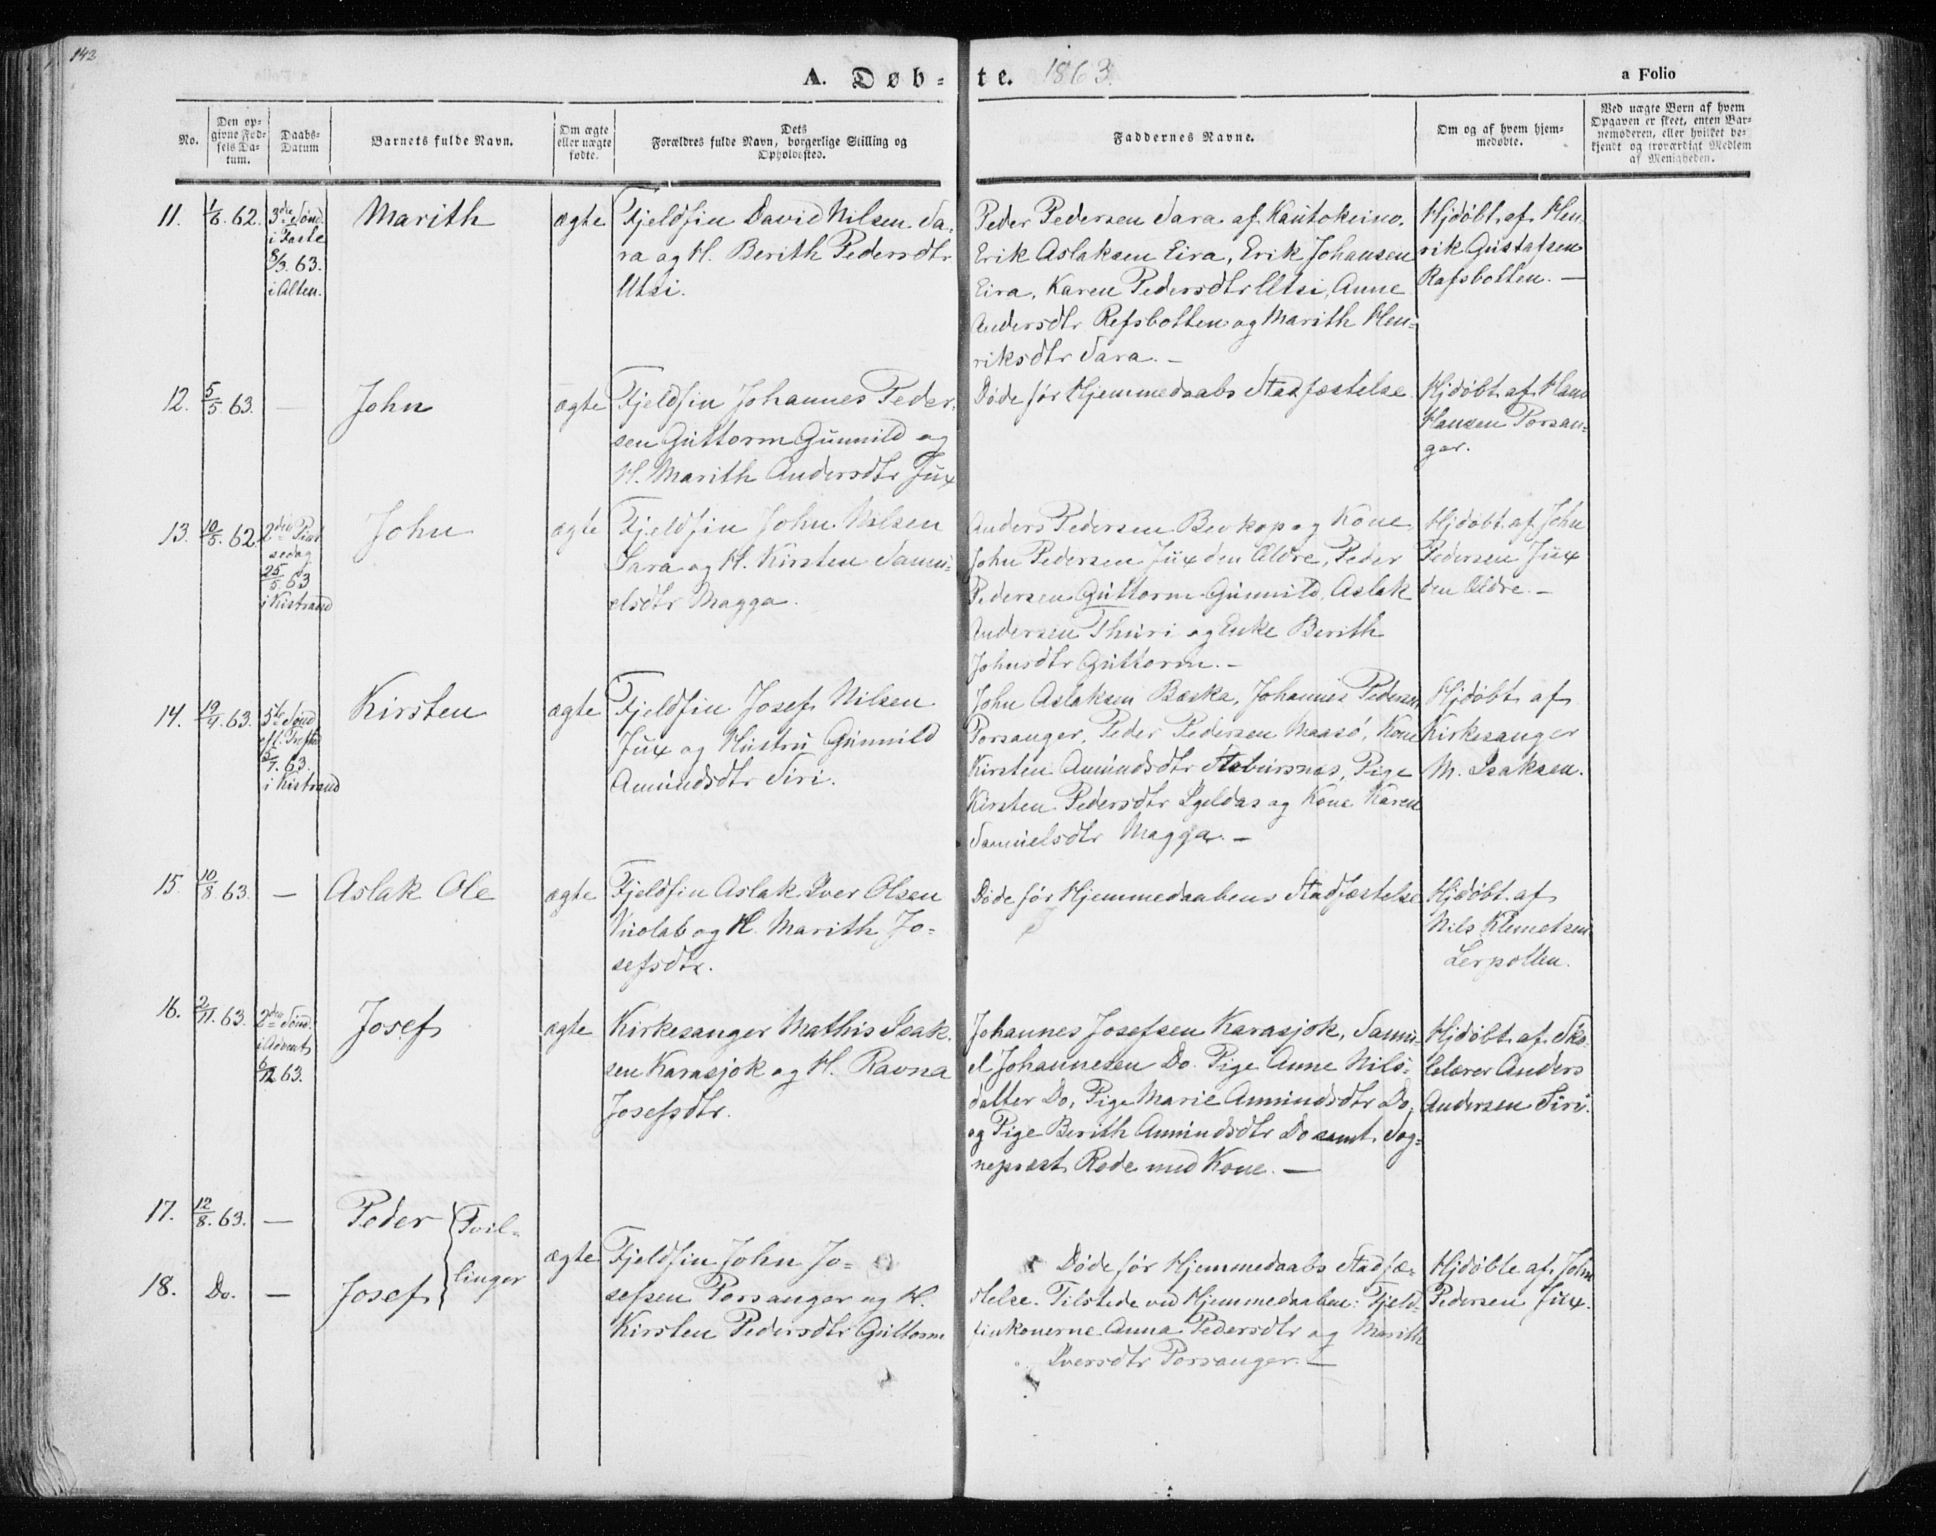 142
A. Døb-
te. 1863.
a Folio
No.
Den op-
givne Fød-
sels Da-
tum.
Daabs-
Datum
Barnets fulde Navn.
Om ægte
eller uægte
fødte.
Dets
Forældres fulde Navn, borgerlige Stilling og
Opholdssted.
Faddernes Navne.
Om og af hvem hjem-
medøbte.
Ved uægte Børn af hvem
Opgaven er skeet, enten Bar-
nemoderen, eller hvilket be-
kjendt og troværdigt Medlem
af Menigheden.
11.
1/6. 62.
3die Sønd.
i Faste
8/3. 63.
i Alten.
Marith
ægte
Fjeldfin David Nilsen Sa-
ra og H. Berith Pedersdtr
Utsi.
Peder Pedersen Sara af Kautokeino,
Erik Aslaksen Eira, Erik Johansen
Eira, Karen Pedersdtr Utsi, Anne
Andersdtr Refsbotten og Marith Hen-
riksdtr Sara. —
Hjdøbt af Hen-
rik Gustafsen
Rafsbotten. —
12.
5/5 63.
—
John
ægte
Fjeldfin Johannes Peder-
sen Guttorm Gunnild og
H. Marith Andersdtr Jux
Døde før Hjemmedaabs Stadfæstelse
Hjdøbt af Hans
Hansen Porsan-
ger.
13.
10/5. 62
2den Pint-
sedag
25/5 63
i Kistrand
John
ægte
Fjeldfin John Nilsen
Sara og H. Kirsten Samu-
elsdtr Magga.
Anders Pedersen Bevkop og Kone,
John Pedersen Jux den Ældre, Peder
Pedersen Guttorm Gunnild, Aslak
Andersen Thuri og Enke Berith
Johnsdtr Guttorm. —
Hjdøbt af John
Pedersen Jux
den Ældre. —
14.
19/4. 63.
5te Sønd.
eft. Trefold.
5/7. 63.
i Kistrand
Kirsten
ægte
Fjeldfin Josef Nilsen
Jux og Hustru Gunnild
Amundsdtr Siri.
John Aslaksen Bæska, Johannes Pedersen
Porsanger, Peder Pedersen Maasø, Kone
Kirsten Amundsdtr Stabursnæs, Pige
Kirsten Pedersdtr Igeldas og Kone Karen
Samuelsdtr Magga. —
Hjdøbt af
Kirkesanger
M. Isaksen.
15.
10/8 63.
—
Aslak Ole
ægte
Fjeldfin Aslak Iver Olsen
Vuolab og H. Marith Jo-
sefsdtr.
Døde før Hjemmedaabens Stadfæstelse
Hjdøbt af
Nils Klemetsen
Lerpollen.
16.
2/11. 63.
2den Sønd.
i Advent
6/12 63.
Josef
ægte
Kirkesanger Mathis Isak-
sen Karasjok og H. Ravna
Josefsdtr.
Johannes Josefsen Karasjok, Samu-
el Johannesen Do. Pige Anne Nils-
datter Do, Pige Marie Amundsdtr Do,
og Pige Berith Amundsdtr Do samt Sog-
nepræst Rode med Kone. —
Hjdøbt af Sko-
lelærer Anders
Andersen Siri.
17.
12/8. 63.
—
Peder
Tvil-
linger
18.
Do.
—
Josef
ægte
Fjeldfin John Jo-
sefsen Porsanger og H.
Kirsten Pedersdtr Guttorm
Døde før Hjemmedaabs Stadfæ-
stelse. Tilstede ved Hjemmedaaben: Fjeld-
finkonerne Anna Pedersdtr og Marith
Iversdtr Porsanger. —
Hjdøbte af John
Pedersen Jux.